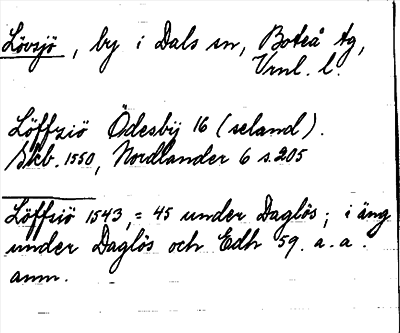 Lövsjö, by i Dals sn, Boteå tg,
Vrnl. l.
Löffziö Ödesbÿ 16 (seland).
Skb. 1550, Nordlander 6 s. 205
Löffsiö 1543, = 45 under Daglös; i äng
under Daglös och Edh 59. a. a.
anm.